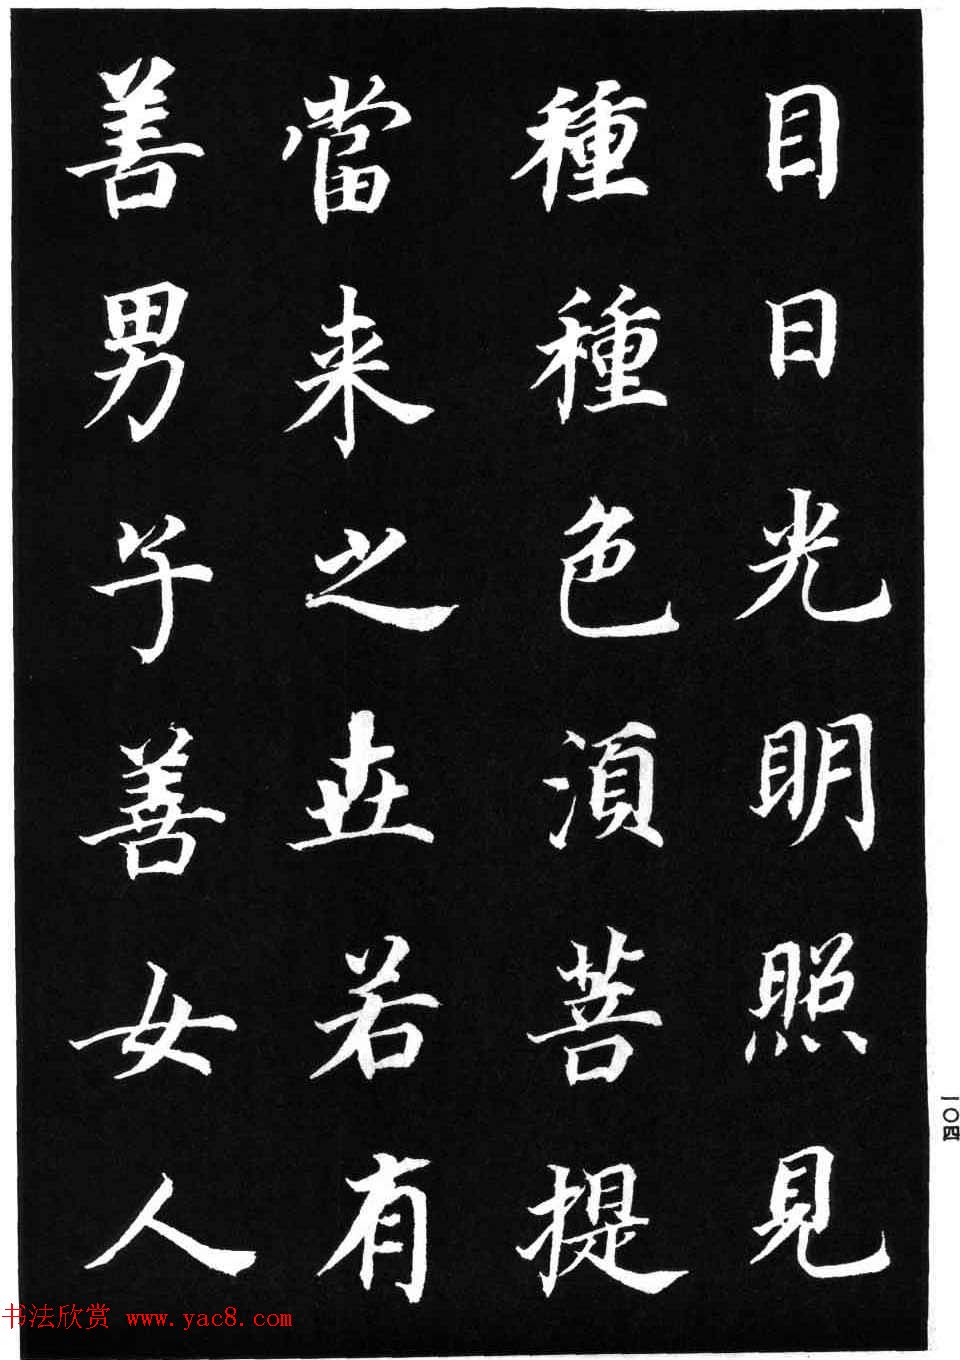 目日光明照見
種種色須菩提
當来之世若有
善男子善女人
一〇四
书法欣赏 www.yac8.com